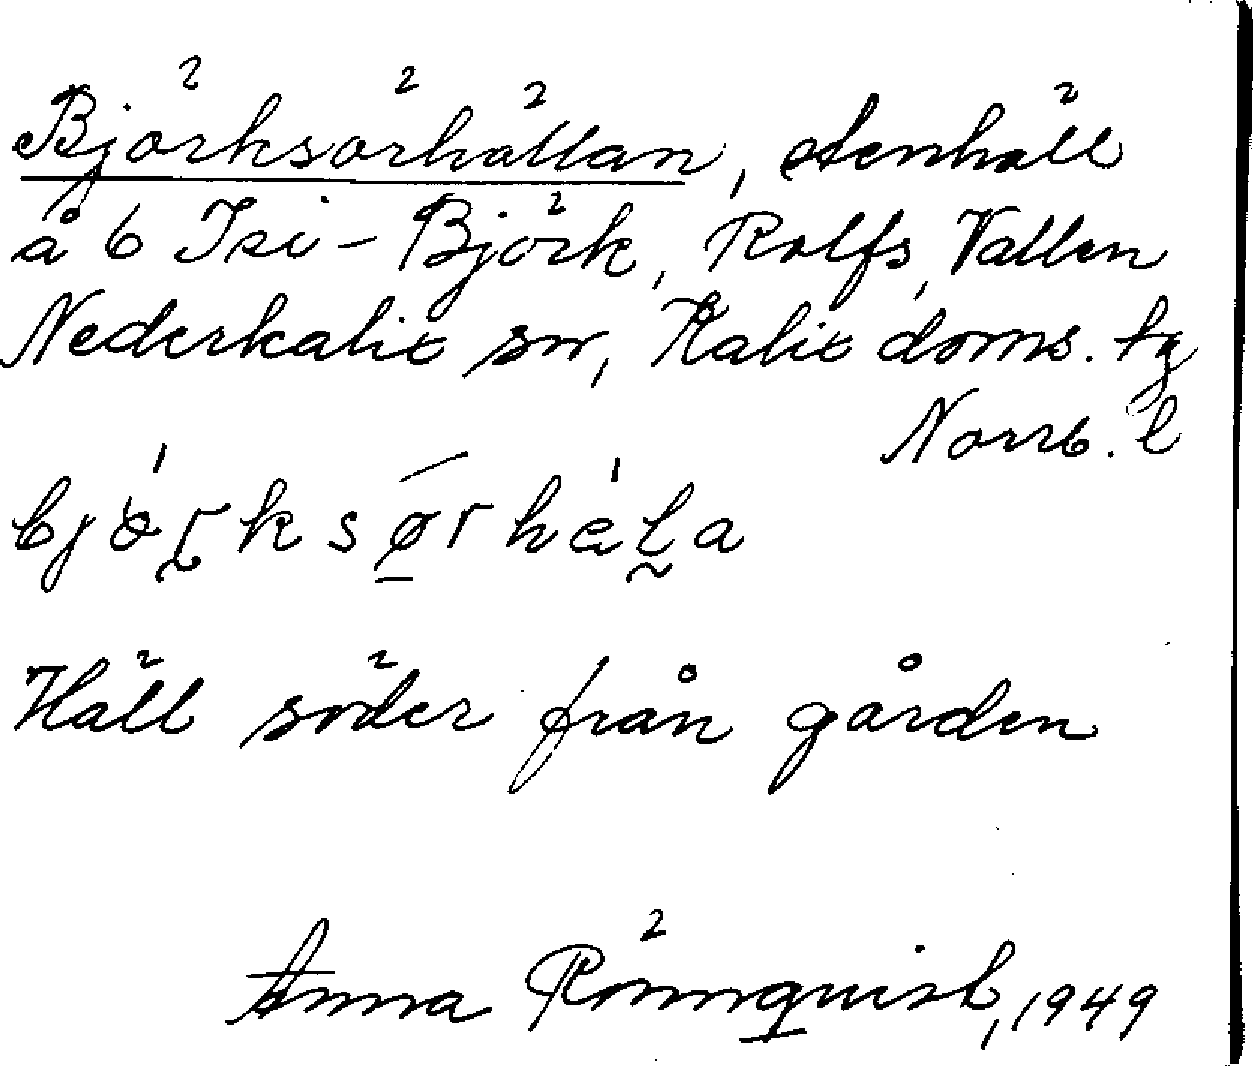 Björksörhällan, stenhäll
å 6 Isi-Björk, Rolfs, Vallen
Nederkalix sn, Kalix doms. tg
Norrb. l
björksørhäla
Häll söder från gården
Anna Rönnquist, 1949